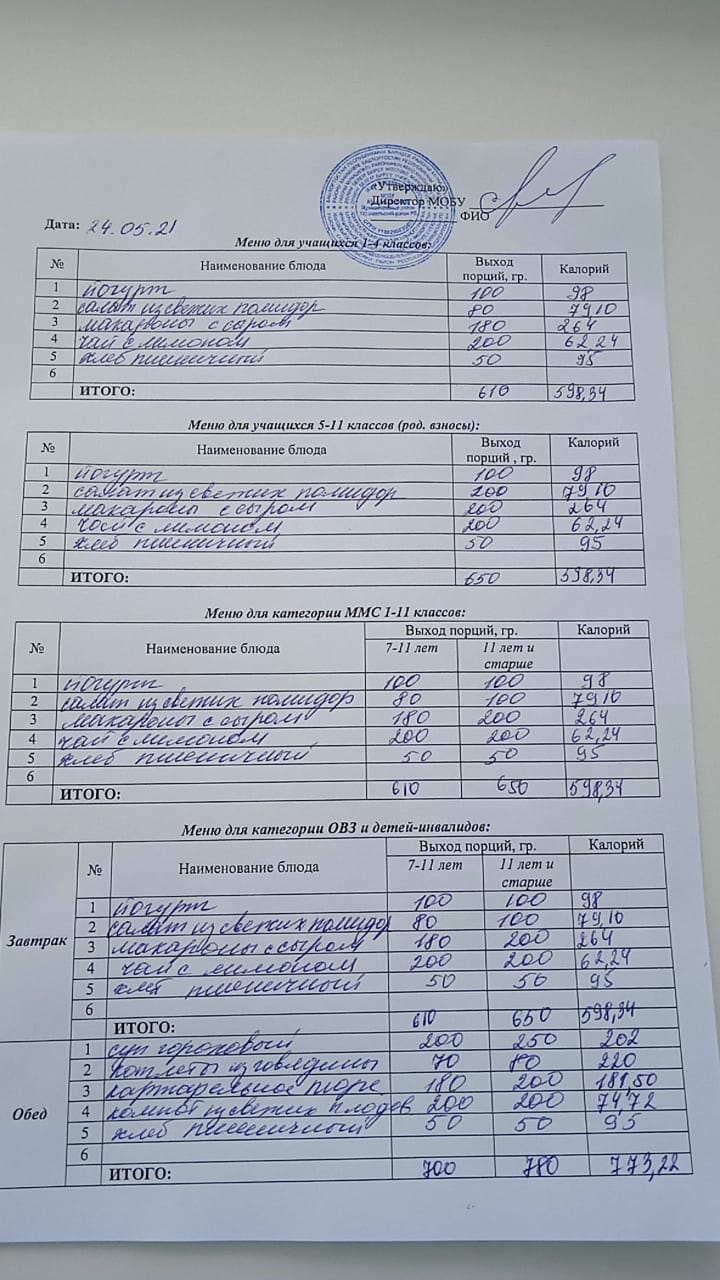 «Утверждаю»
Директор МОБУ
Дата: 24.05.21 ФИО
Меню для учащихся 1-4 классов:
№ Наименование блюда Выход порций, гр. Калорий
1 йогурт 100 98
2 салат из свежих помидор 80 79,10
3 макароны с сыром 180 264
4 чай с лимоном 200 62,24
5 хлеб пшеничный 50 95
6
ИТОГО: 610 598,34
Меню для учащихся 5-11 классов (род. взносы):
№ Наименование блюда Выход порций , гр. Калорий
1 йогурт 100 98
2 салат из свежих помидор 200 79,10
3 макароны с сыром 200 264
4 чай с лимоном 200 62,24
5 хлеб пшеничный 50 95
6
ИТОГО: 650 598,34
Меню для категории ММС 1-11 классов:
№ Наименование блюда Выход порций, гр. Калорий
7-11 лет 11 лет и старше
1 йогурт 100 100 98
2 салат из свежих помидор 80 100 79,10
3 макароны с сыром 180 200 264
4 чай с лимоном 200 200 62,24
5 хлеб пшеничный 50 50 95
6
ИТОГО: 610 650 598,34
Меню для категории ОВЗ и детей-инвалидов:
№ Наименование блюда Выход порций, гр. Калорий
7-11 лет 11 лет и старше
Завтрак
1 йогурт 100 100 98
2 салат из свежих помидор 80 100 79,10
3 макароны с сыром 180 200 264
4 чай с лимоном 200 200 62,24
5 хлеб пшеничный 50 50 95
6
ИТОГО: 610 650 598,34
Обед
1 суп гороховый 200 250 202
2 котлеты из говядины 70 80 220
3 картофельное пюре 180 200 181,50
4 компот из свежих плодов 200 200 74,72
5 хлеб пшеничный 50 50 95
6
ИТОГО: 700 780 773,22